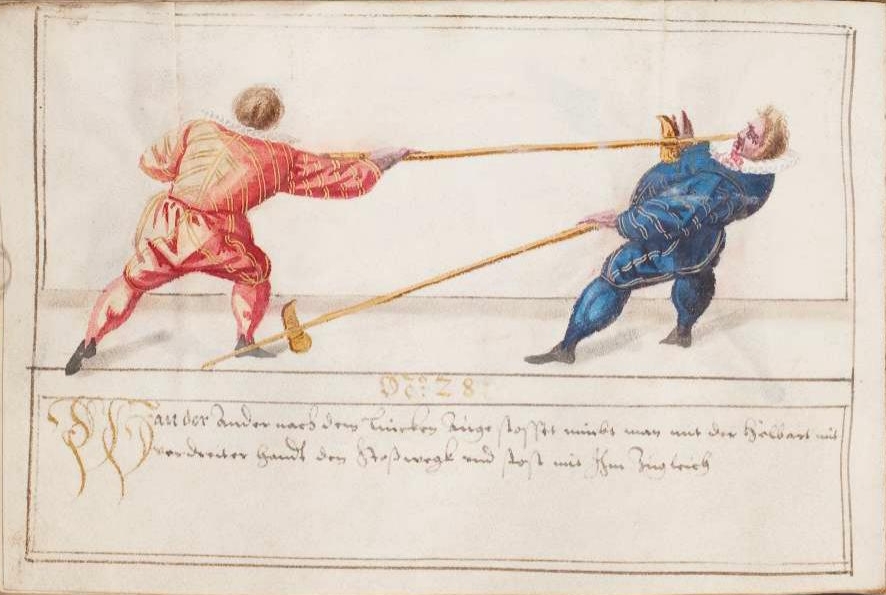 No: 28
Wan der Ander nach dem Lincken Auge stosset nimbt man mit der Helbart mit
verdreter handt den Stoß wegk vnd stost mit Ihm Zugleich